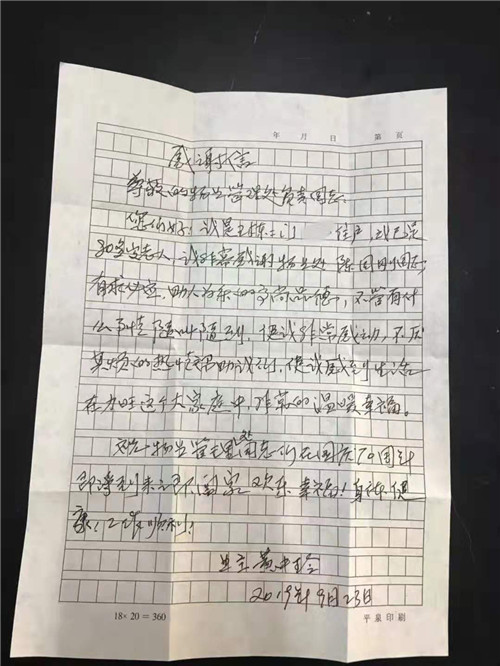 年 月 日 第 页
感谢信
尊敬的物业管理处负责同志:
您们好!我是王栋二门 住户,我已是
80多岁老人,我非常感谢物业处陈同同志
有求必应,助人为乐的高尚品德,不管有什
么事情随叫随到,使我非常感动,不厌
其烦的热情帮助我们,使我感到生活
在 这个大家庭中非常的温暖幸福。
祝物业管理处同志们在国庆70周年
即将到来之际,阖家欢乐幸福!身体健
康!工作顺利!
业主 黄
2019年9月23日
18×20=360
平泉印刷